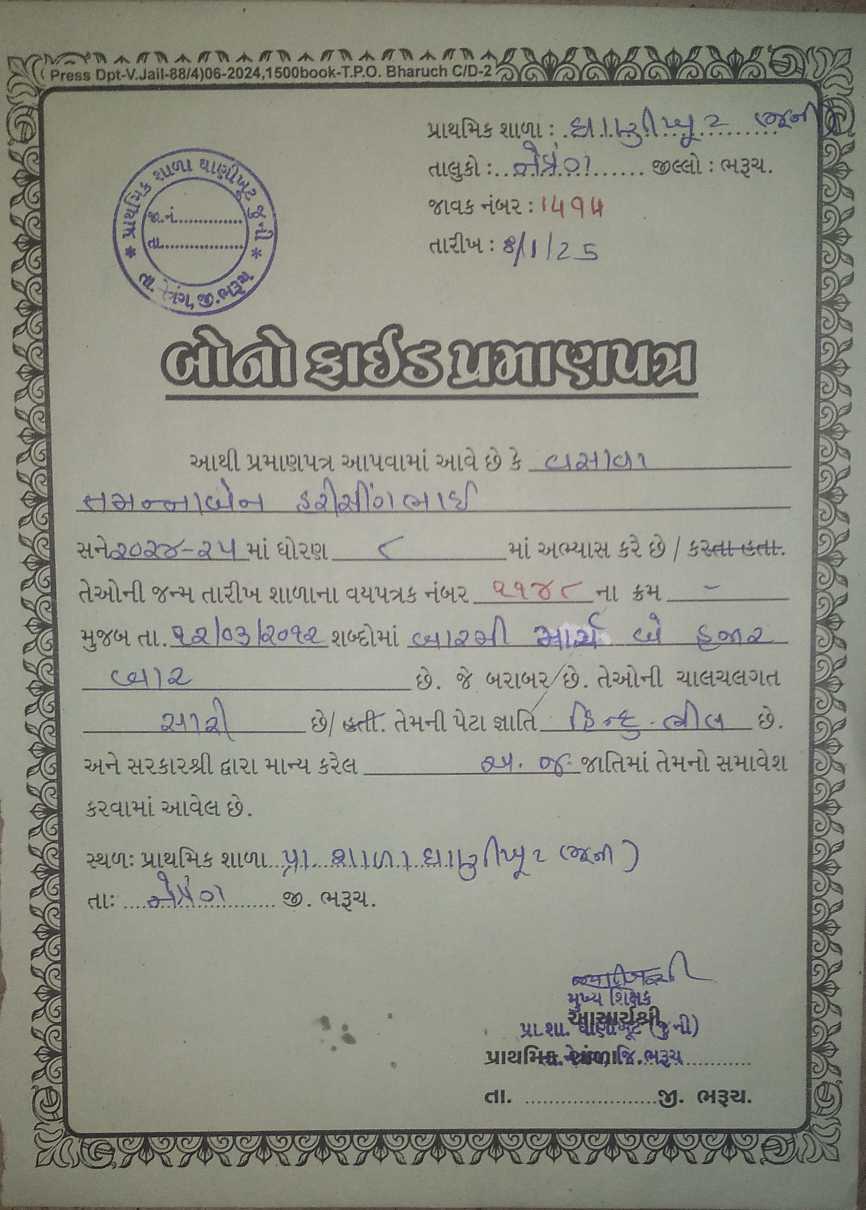 Press Dpt-V.Jail-88/4)06-2024,1500book-T.P.O. Bharuch C/D-2
પ્રાથમિક શાળા : ઘાણીખૂટ (જુની)
તાલુકો : નેત્રંગ જીલ્લો : ભરૂચ.
જાવક નંબર : ૧૫૧૫
તારીખ : ૪/1/25
પ્રાથમિક શાળા ઘાણીખૂટ જુની
જા.નં..............
તા..................
તા. નેત્રંગ, જી. ભરૂચ
બોનો ફાઈડ પ્રમાણપત્ર
આથી પ્રમાણપત્ર આપવામાં આવે છે કે વસાવા
તમન્નાબેન હરીસીંગભાઈ
સને ૨૦૨૪-૨૫ માં ધોરણ ૮ માં અભ્યાસ કરે છે / કરતા હતા.
તેઓની જન્મ તારીખ શાળાના વયપત્રક નંબર ૨૧૪૮ ના ક્રમ -
મુજબ તા. ૧૨/૦૩/૨૦૧૨ શબ્દોમાં બારમી માર્ચ બે હજાર
બાર છે. જે બરાબર છે. તેઓની ચાલચલગત
સારી છે/ હતી. તેમની પેટા જ્ઞાતિ હિન્દુ - ભીલ છે.
અને સરકારશ્રી દ્વારા માન્ય કરેલ અ. જ. જાતિમાં તેમનો સમાવેશ
કરવામાં આવેલ છે.
સ્થળઃ પ્રાથમિક શાળા પ્રા. શાળા ઘાણીખૂટ (જુની)
તાઃ નેત્રંગ જી. ભરૂચ.
મુખ્ય શિક્ષક
આચાર્યશ્રી
પ્રા.શા. ઘાણીખૂટ (જુની)
પ્રાથમિક શાળા
તા. નેત્રંગ જિ. ભરૂચ
તા. ...................... જી. ભરૂચ.